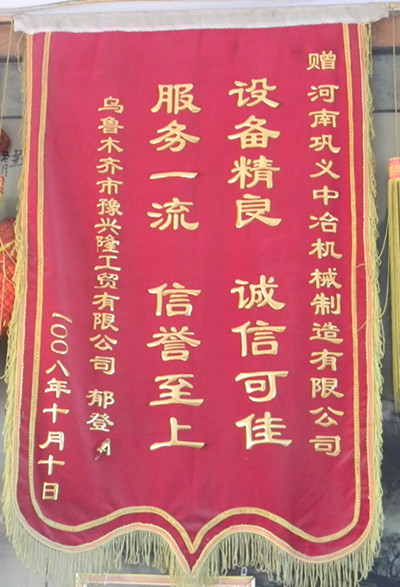 赠 河南巩义中冶机械制造有限公司
设备精良 诚信可佳
服务一流 信誉至上
乌鲁木齐市豫兴隆工贸有限公司 郁登
二00八年十月十日